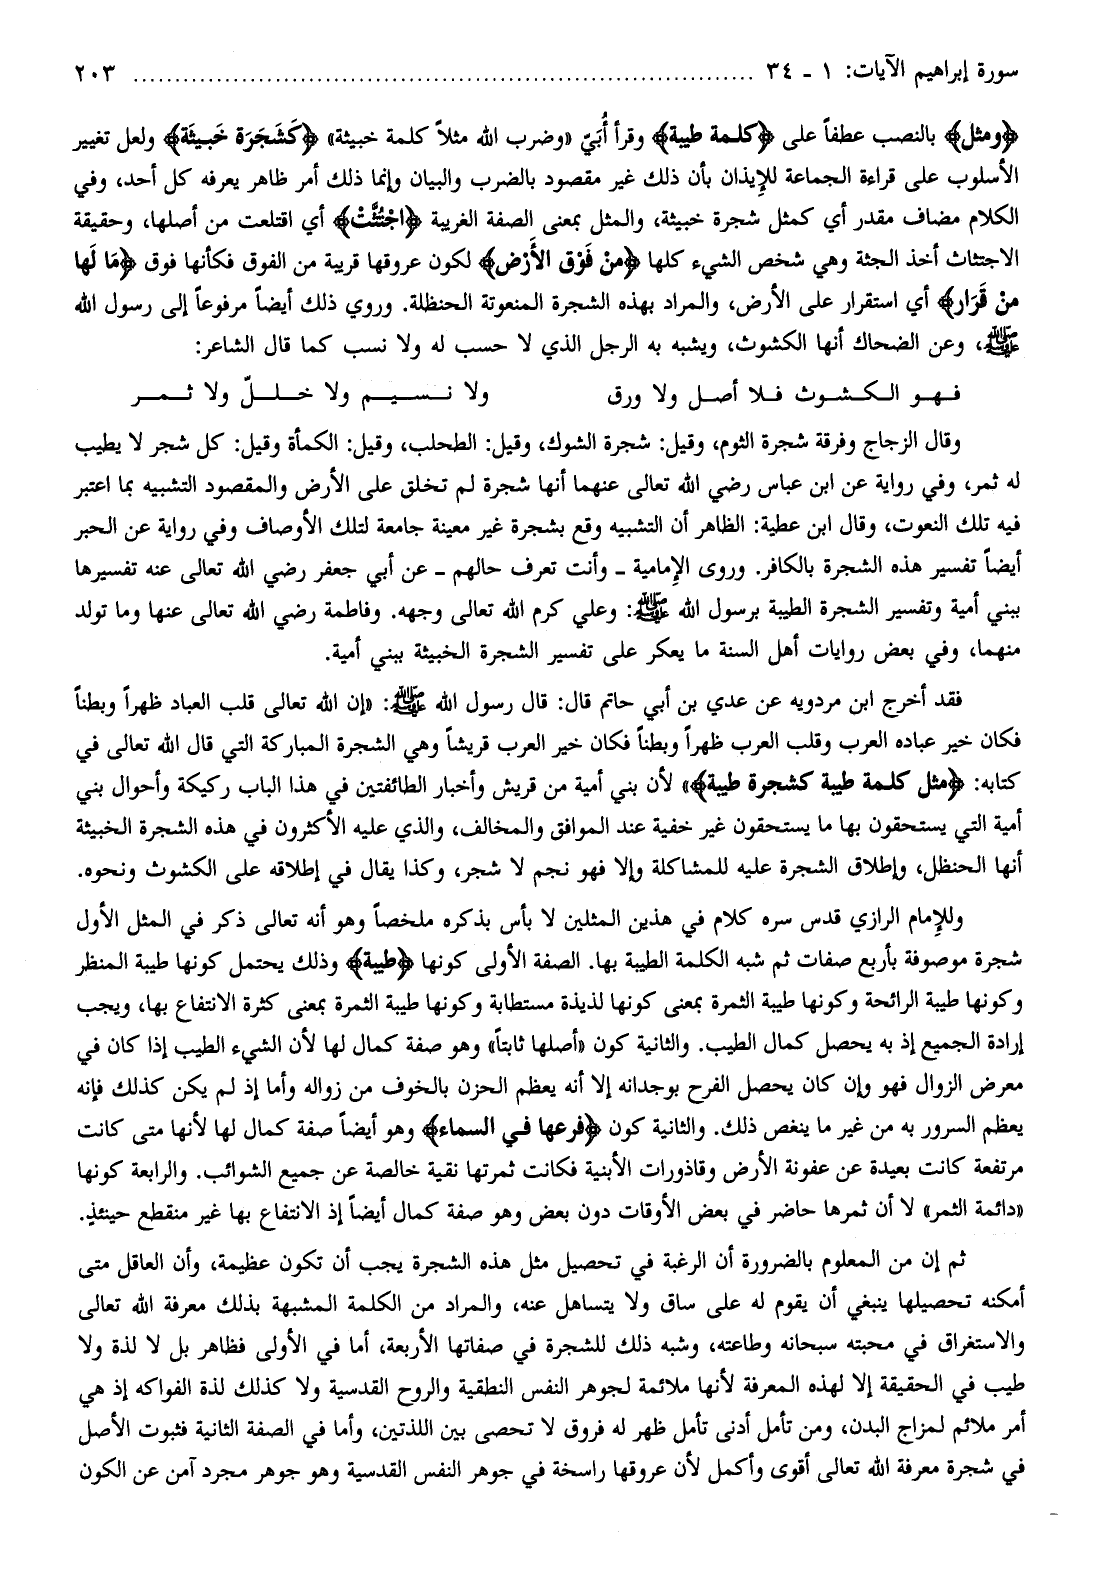 سورة إبراهيم الآيات: ١ ـ ٣٤ ........................................................................... ٢٠٣
﴿ومثل﴾ بالنصب عطفاً على ﴿كلمة طيبة﴾ وقرأ أُبَيّ «وضرب الله مثلاً كلمة خبيثة» ﴿كَشَجَرَة خَبيثَة﴾ ولعل تغيير
الأسلوب على قراءة الجماعة للإيذان بأن ذلك غير مقصود بالضرب والبيان وإنما ذلك أمر ظاهر يعرفه كل أحد، وفي
الكلام مضاف مقدر أي كمثل شجرة خبيثة، والمثل بمعنى الصفة الغريبة ﴿اجْتُثَّتْ﴾ أي اقتلعت من أصلها، وحقيقة
الاجتثاث أخذ الجثة وهي شخص الشيء كلها ﴿منْ فَوْق الأَرْض﴾ لكون عروقها قريبة من الفوق فكأنها فوق ﴿مَا لَها
منْ قَرَار﴾ أي استقرار على الأرض، والمراد بهذه الشجرة المنعوتة الحنظلة. وروي ذلك أيضاً مرفوعاً إلى رسول الله
ﷺ، وعن الضحاك أنها الكشوث، ويشبه به الرجل الذي لا حسب له ولا نسب كما قال الشاعر:
فهو الكشوث فلا أصل ولا ورق ولا نسيم ولا خلل ولا ثمر
وقال الزجاج وفرقة شجرة الثوم، وقيل: شجرة الشوك، وقيل: الطحلب، وقيل: الكمأة وقيل: كل شجر لا يطيب
له ثمر، وفي رواية عن ابن عباس رضي الله تعالى عنهما أنها شجرة لم تخلق على الأرض والمقصود التشبيه بما اعتبر
فيه تلك النعوت، وقال ابن عطية: الظاهر أن التشبيه وقع بشجرة غير معينة جامعة لتلك الأوصاف وفي رواية عن الحبر
أيضاً تفسير هذه الشجرة بالكافر. وروى الإمامية ـ وأنت تعرف حالهم ـ عن أبي جعفر رضي الله تعالى عنه تفسيرها
ببني أمية وتفسير الشجرة الطيبة برسول الله ﷺ: وعلي كرم الله تعالى وجهه. وفاطمة رضي الله تعالى عنها وما تولد
منهما، وفي بعض روايات أهل السنة ما يعكر على تفسير الشجرة الخبيثة ببني أمية.
فقد أخرج ابن مردويه عن عدي بن أبي حاتم قال: قال رسول الله ﷺ: «إن الله تعالى قلب العباد ظهراً وبطناً
فكان خير عباده العرب وقلب العرب ظهراً وبطناً فكان خير العرب قريشاً وهي الشجرة المباركة التي قال الله تعالى في
كتابه: ﴿مثل كلمة طيبة كشجرة طيبة﴾» لأن بني أمية من قريش وأخبار الطائفتين في هذا الباب ركيكة وأحوال بني
أمية التي يستحقون بها ما يستحقون غير خفية عند الموافق والمخالف، والذي عليه الأكثرون في هذه الشجرة الخبيثة
أنها الحنظل، وإطلاق الشجرة عليه للمشاكلة وإلا فهو نجم لا شجر، وكذا يقال في إطلاقه على الكشوث ونحوه.
وللإمام الرازي قدس سره كلام في هذين المثلين لا بأس بذكره ملخصاً وهو أنه تعالى ذكر في المثل الأول
شجرة موصوفة بأربع صفات ثم شبه الكلمة الطيبة بها. الصفة الأولى كونها ﴿طيبة﴾ وذلك يحتمل كونها طيبة المنظر
وكونها طيبة الرائحة وكونها طيبة الثمرة بمعنى كونها لذيذة مستطابة وكونها طيبة الثمرة بمعنى كثرة الانتفاع بها، ويجب
إرادة الجميع إذ به يحصل كمال الطيب. والثانية كون «أصلها ثابتاً» وهو صفة كمال لها لأن الشيء الطيب إذا كان في
معرض الزوال فهو وإن كان يحصل الفرح بوجدانه إلا أنه يعظم الحزن بالخوف من زواله وأما إذ لم يكن كذلك فإنه
يعظم السرور به من غير ما ينغص ذلك. والثانية كون ﴿فرعها في السماء﴾ وهو أيضاً صفة كمال لها لأنها متى كانت
مرتفعة كانت بعيدة عن عفونة الأرض وقاذورات الأبنية فكانت ثمرتها نقية خالصة عن جميع الشوائب. والرابعة كونها
«دائمة الثمر» لا أن ثمرها حاضر في بعض الأوقات دون بعض وهو صفة كمال أيضاً إذ الانتفاع بها غير منقطع حينئذٍ.
ثم إن من المعلوم بالضرورة أن الرغبة في تحصيل مثل هذه الشجرة يجب أن تكون عظيمة، وأن العاقل متى
أمكنه تحصيلها ينبغي أن يقوم له على ساق ولا يتساهل عنه، والمراد من الكلمة المشبهة بذلك معرفة الله تعالى
والاستغراق في محبته سبحانه وطاعته، وشبه ذلك للشجرة في صفاتها الأربعة، أما في الأولى فظاهر بل لا لذة ولا
طيب في الحقيقة إلا لهذه المعرفة لأنها ملائمة لجوهر النفس النطقية والروح القدسية ولا كذلك لذة الفواكه إذ هي
أمر ملائم لمزاج البدن، ومن تأمل أدنى تأمل ظهر له فروق لا تحصى بين اللذتين، وأما في الصفة الثانية فثبوت الأصل
في شجرة معرفة الله تعالى أقوى وأكمل لأن عروقها راسخة في جوهر النفس القدسية وهو جوهر مجرد آمن عن الكون